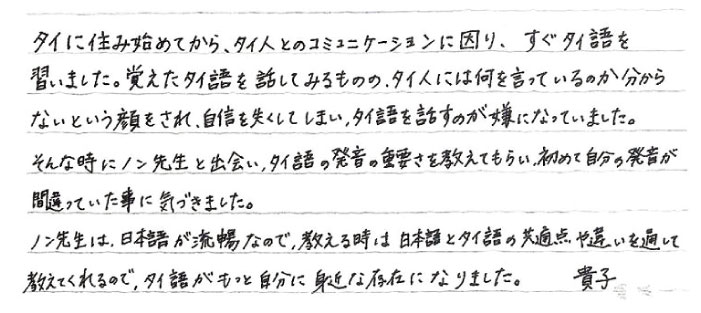 タイに住み始めてから、タイ人とのコミュニケーションに困り、すぐタイ語を
習いました。覚えたタイ語を話してみるものの、タイ人には何を言っているのか分から
ないという顔をされ、自信を失くしてしまい、タイ語を話すのが嫌になっていました。
そんな時にノン先生と出会い、タイ語の発音の重要さを教えてもらい、初めて自分の発音が
間違っていた事に気づきました。
ノン先生は、日本語が流暢なので、教える時は日本語とタイ語の共通点や違いを通して
教えてくれるので、タイ語がもっと自分に身近な存在になりました。 貴子